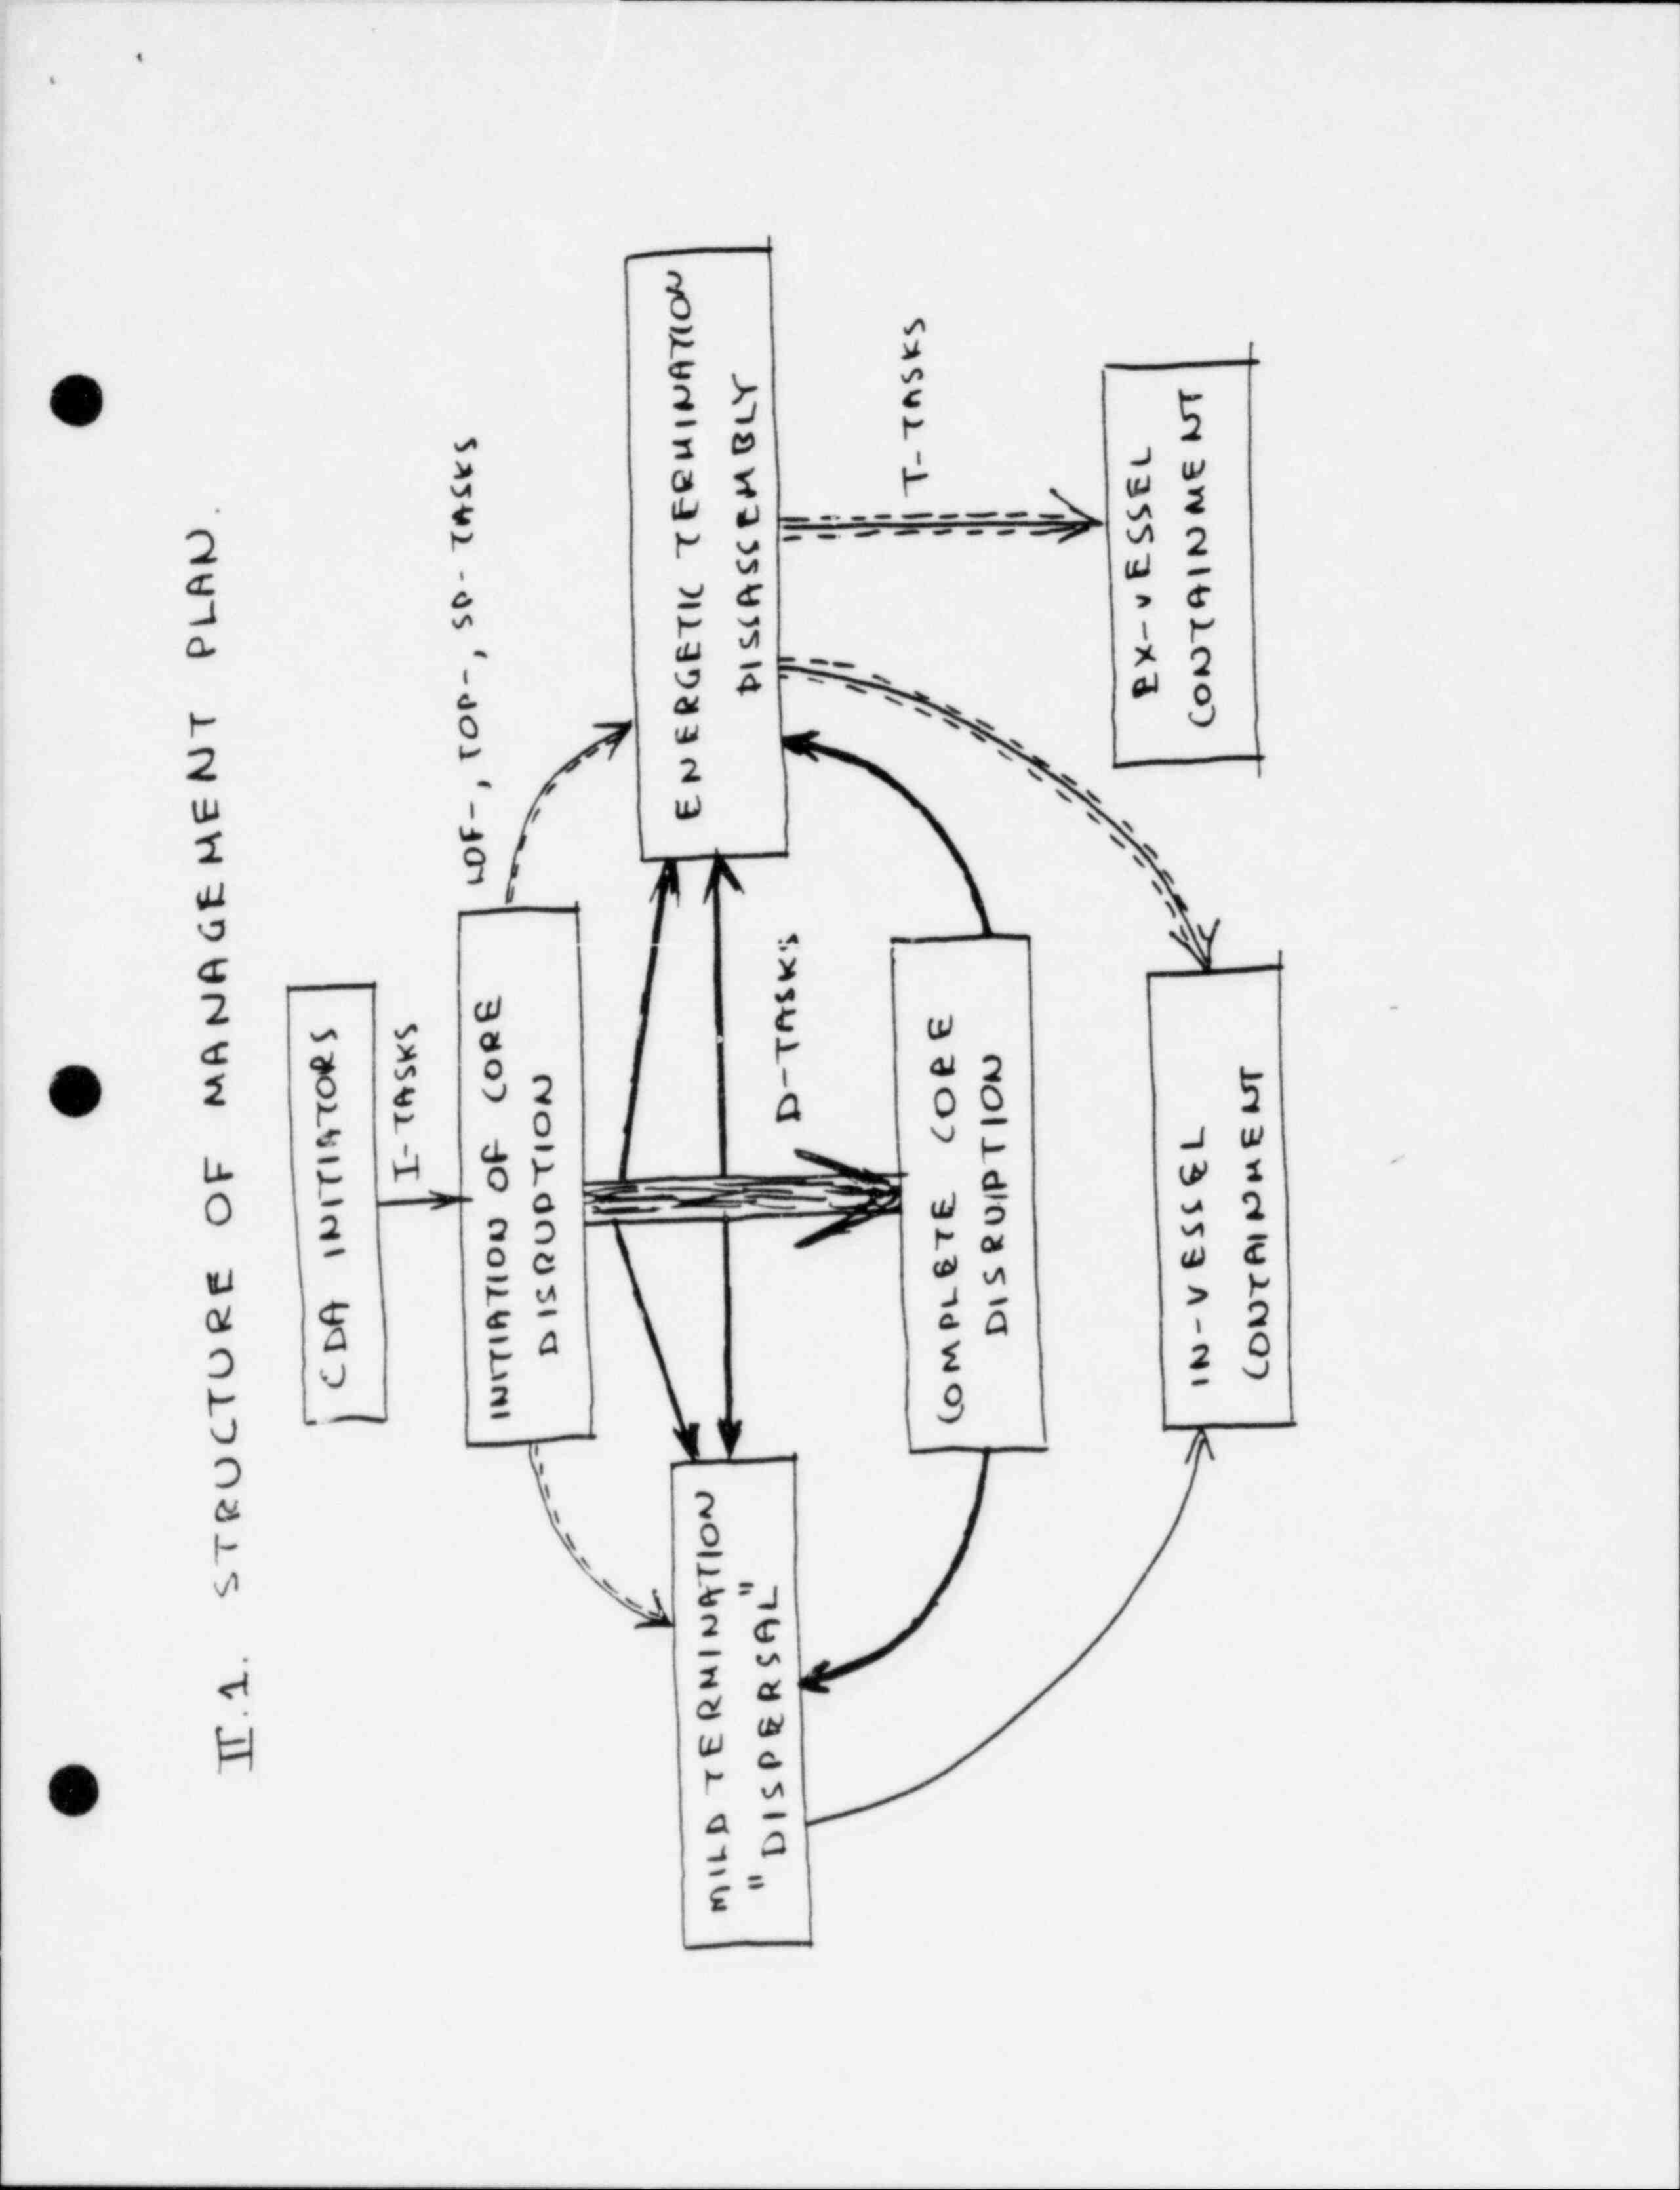 II.1. STRUCTURE OF MANAGEMENT PLAN.
CDA INITIATORS
I-TASKS
INITIATION OF CORE
DISRUPTION
LOF-, TOP-, SD-TASKS
MILD TERMINATION
"DISPERSAL"
ENERGETIC TERMINATION
DISSASSEMBLY
D-TASKS
T-TASKS
COMPLETE CORE
DISRUPTION
IN-VESSEL
CONTAINMENT
EX-VESSEL
CONTAINMENT